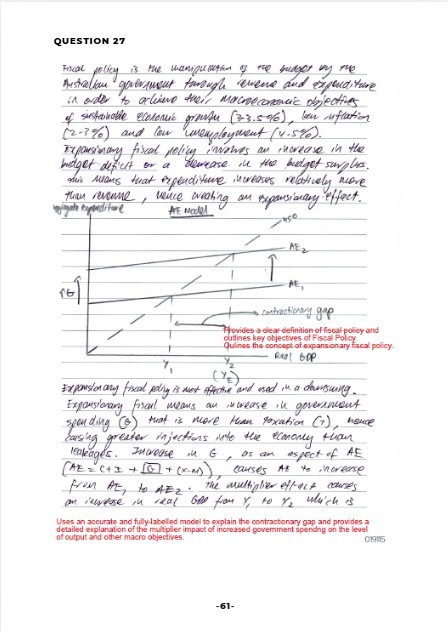 QUESTION 27
Fiscal policy is the manipulation of the budget by the
Australian government through revenue and expenditure
in order to achieve their macroeconomic objectives
of sustainable economic growth (3-3.5%), low inflation
(2-3%) and low unemployment (4.5%).
Expansionary fiscal policy involves an increase in the
budget deficit or a decrease in the budget surplus.
This means that expenditure increases relatively more
than revenue, hence creating an expansionary effect.
Aggregate expenditure
AE Model
45°
AE2
AE1
↑G
contractionary gap
Provides a clear definition of fiscal policy and
outlines key objectives of Fiscal Policy.
Oulines the concept of expansionary fiscal policy.
Real GDP
Y1
Y2
(YE)
Expansionary fiscal policy is most effective and used in a
Expansionary fiscal means an increase in government
spending (G) that is more than taxation (T), hence
causing greater injections into the economy than
leakages. Increase in G, as an aspect of AE
(AE = C + I + G + (X-M)), causes AE to increase
from AE1 to AE2. The multiplier effect causes
an increase in real GDP from Y1 to Y2 which is
Uses an accurate and fully-labelled model to explain the contractionary gap and provides a
detailed explanation of the multiplier impact of increased government spendng on the level
of output and other macro objectives.
019115
-61-